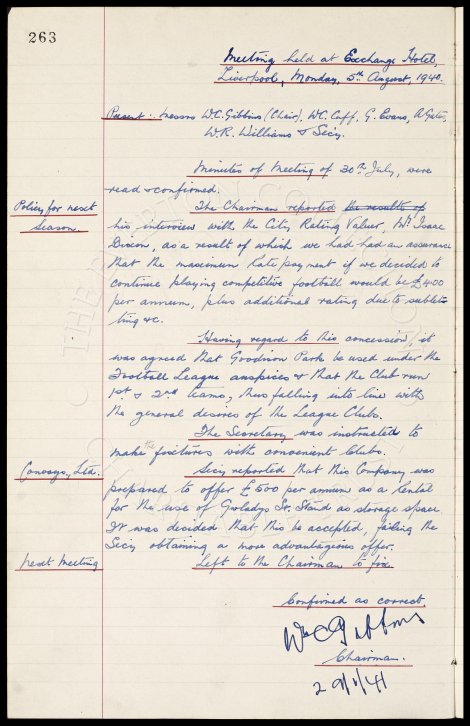 263
Meeting held at Exchange Hotel,
Liverpool, Monday, 5th August, 1940.
Present: Messrs W.C. Gibbins (Chair), W.C. Cuff, G. Evans, A. Gates,
W.R. Williams & Secy.
Minutes of Meeting of 30th July, were
read & confirmed.
Policy for next
season.
The Chairman reported the results of
his interview with the City Rating Valuer, Mr. Isaac
Dixon, as a result of which we had had an assurance
that the maximum Rate payment if we decided to
continue playing competitive football would be £400
per annum, plus additional rating due to sublet-
ting &c.
Having regard to this concession, it
was agreed that Goodison Park be used under the
Football League auspices & that the Club run
1st & 2nd teams, thus falling into line with
the general desires of the League Clubs.
The Secretary was instructed to
make the fixtures with convenient Clubs.
Convoys, Ltd.
Secy reported that this Company was
prepared to offer £500 per annum as a rental
for the use of Gwladys St. Stand as storage space
It was decided that this be accepted, failing the
Secy obtaining a more advantageous offer.
Next meeting
Left to the Chairman to fix.
Confirmed as correct.
Wm C Gibbins
Chairman.